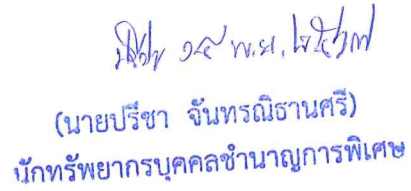 พ.ย.
(นายปรีชา จันทรณิธานศรี)
นักทรัพยากรบุคคลชำนาญการพิเศษ